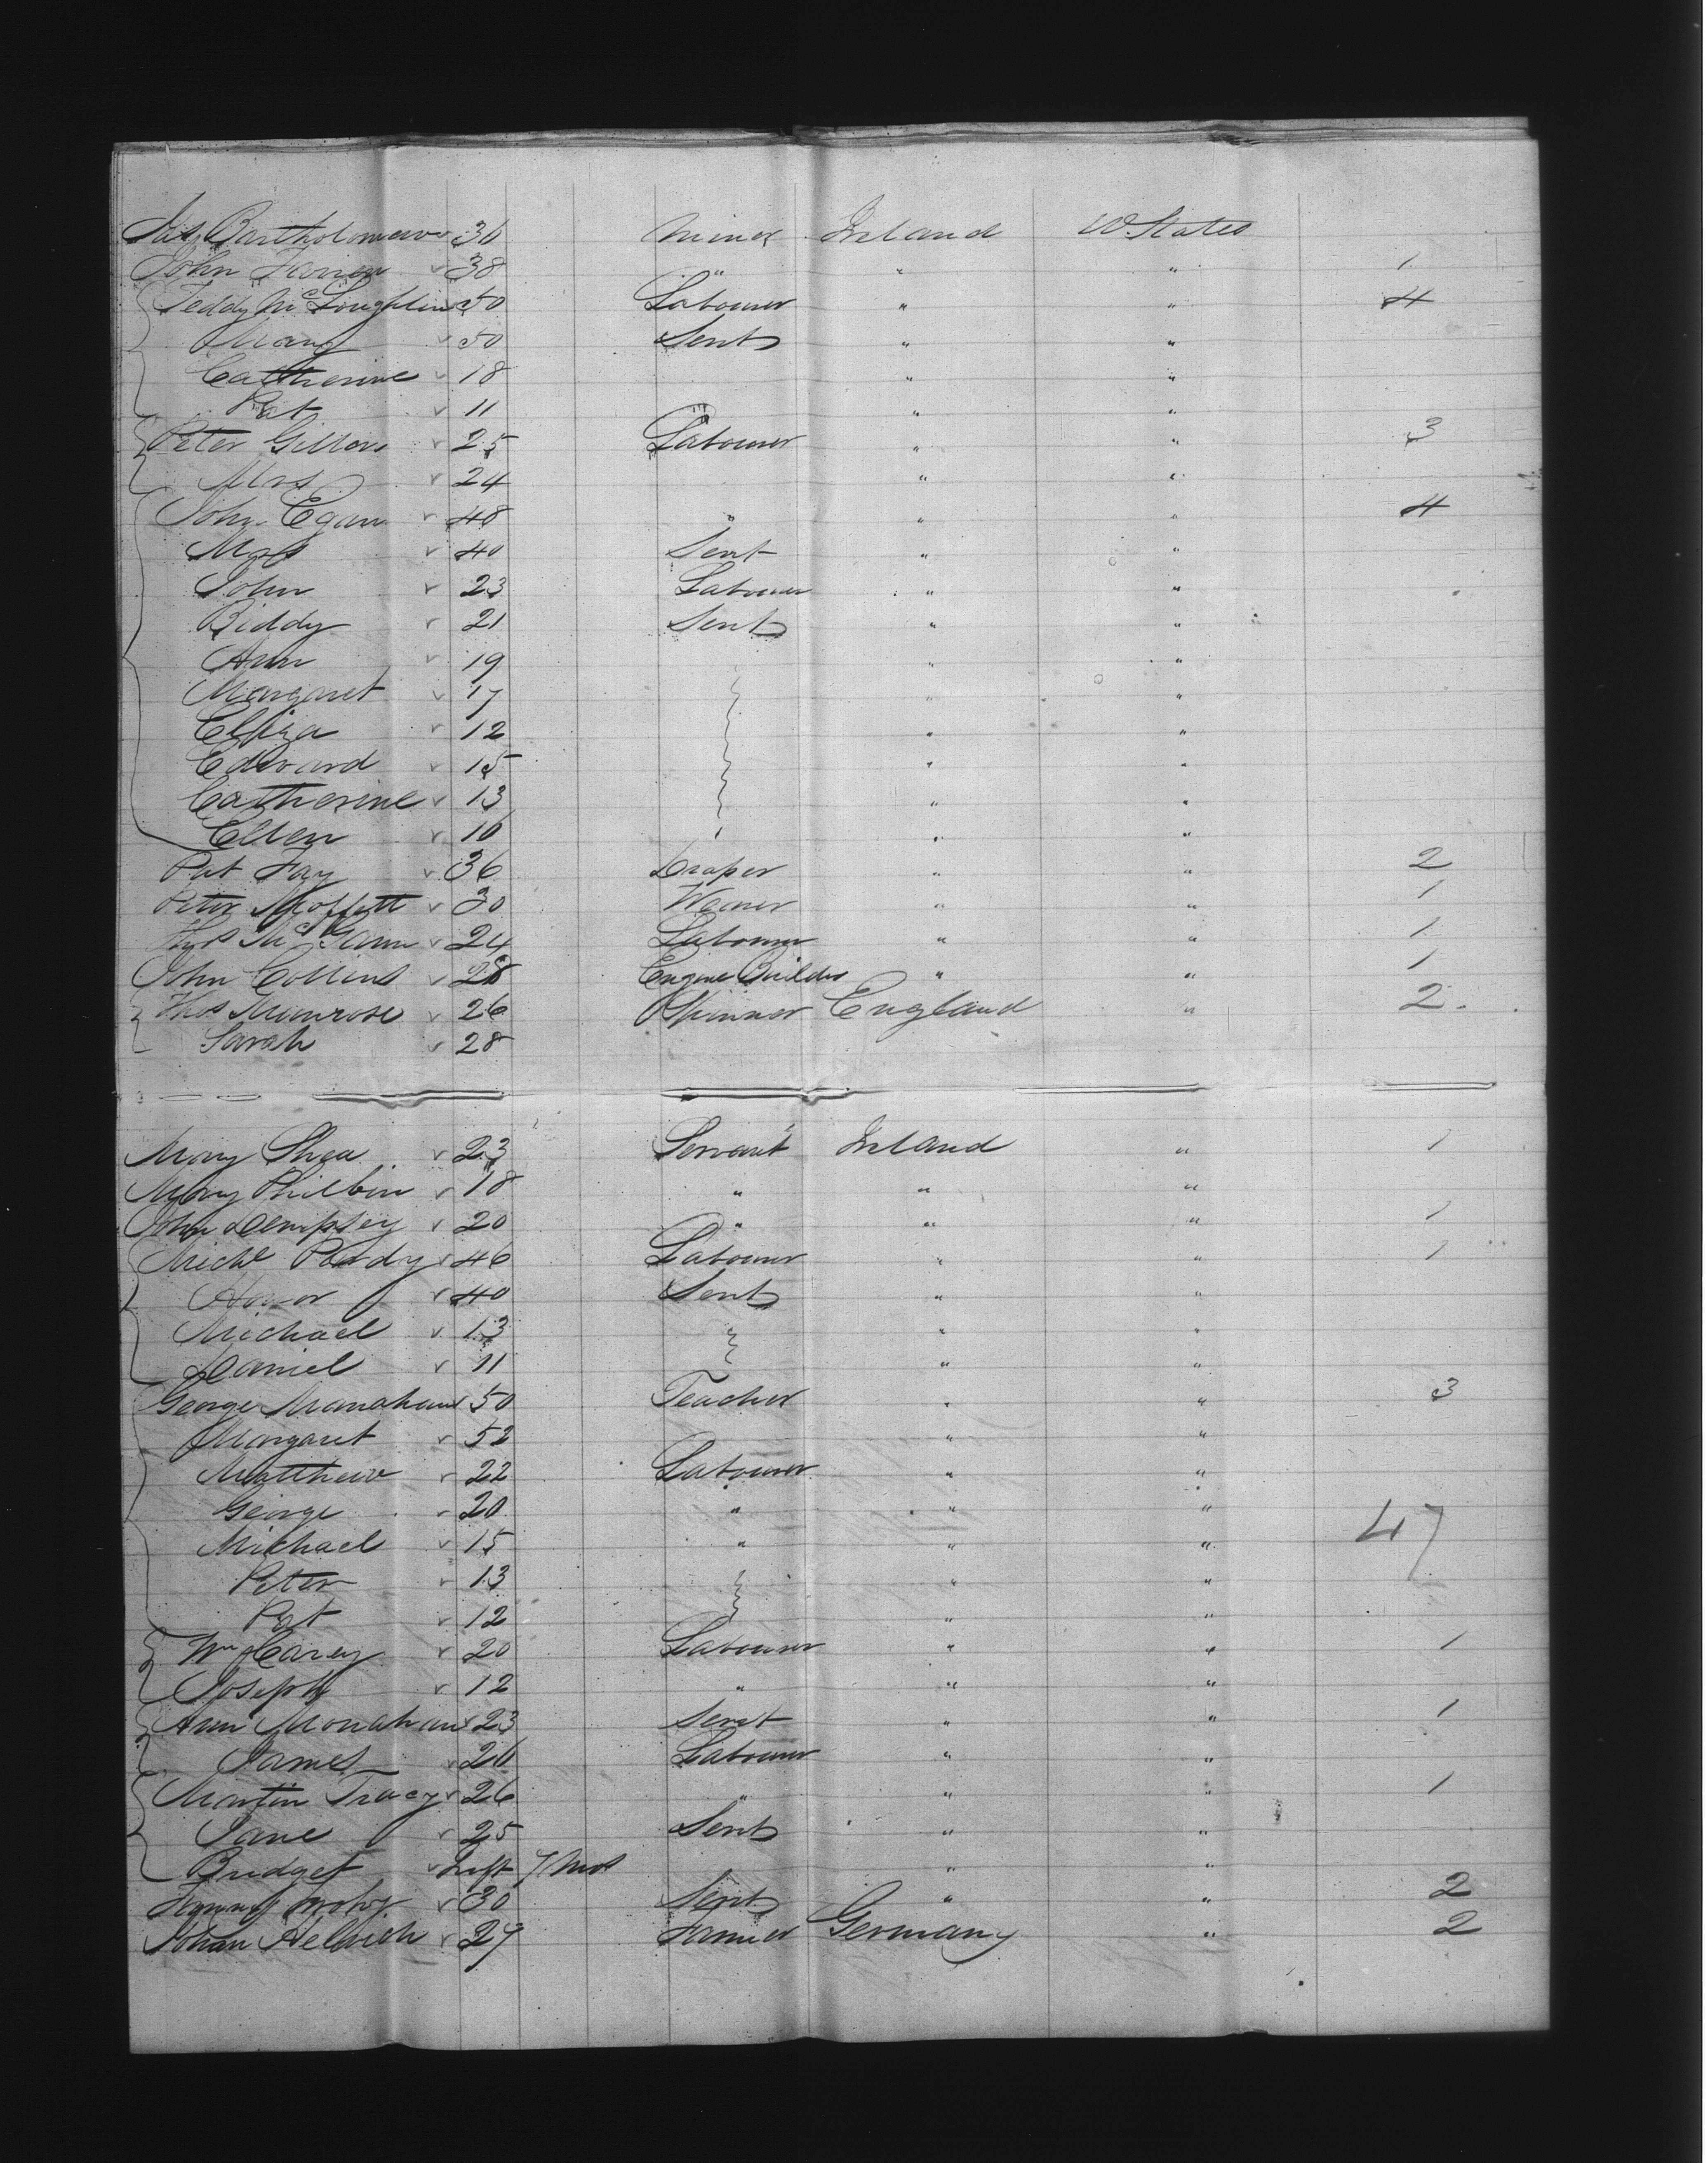 Jas Bartholomew 30 Miner Ireland U. States
John Farren 38 " " " 1
Teddy McLoughlin 50 Labourer " " 4
Mary 50 Servt " "
Catherine 18 " "
Pat 11 " "
Peter Gillon 25 Labourer " " 3
Mrs 24 " "
John Egan 48 " " " 4
Mrs 40 Servt " "
John 23 Labourer " "
Biddy 21 Servt " "
Ann 19 " "
Margaret 17 " "
Eliza 12 " "
Edward 15 " "
Catherine 13 " "
Ellen 10 " "
Pat Fay 36 Draper " " 2
Peter Moffett 30 " " 1
Thos McGann 24 Labourer " " 1
John Collins 28 Engine Builder " " 1
Thos Munrose 26 Spinner England " 2
Sarah 28
Mary Shea 23 Servant Ireland " 1
Mary Philbin 18 " " "
John Dempsey 20 " " " 1
Michl Paddy 46 Labourer " " 1
Honor 40 Servt " "
Michael 13 " "
Daniel 11 " "
George Manahan 50 Teacher " " 3
Margaret 52 " "
Matthew 22 Labourer " "
George 20 " " "
47
Michael 15 " " "
Peter 13 " "
Pat 12 " "
Wm Carey 20 Labourer " " 1
Joseph 12 " " "
Ann Monahan 23 Servt " " 1
James 26 Labourer " "
Martin Tracy 26 " " " 1
Jane 25 Servt " "
Bridget Inft 7 Mos " "
30 Servt " " 2
Johan 27 Farmer Germany " 2